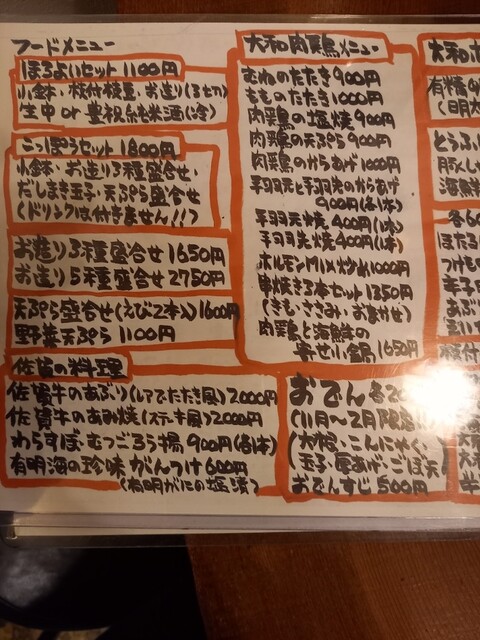 フードメニュー
ほろよいセット 1100円
小鉢・枝付枝豆・お造り(3切)
生中 or 豊祝純米酒(冷)
こっぽうセット 1800円
小鉢・お造り3種盛合せ・
だしまき玉子・天ぷら盛合せ
(ドリンクは付きません!!)
お造り3種盛合せ 1650円
お造り5種盛合せ 2750円
天ぷら盛合せ(えび2本入) 1600円
野菜天ぷら 1100円
佐賀の料理
佐賀牛のあぶり(レアでたたき風) 2000円
佐賀牛のあみ焼(ステーキ風) 2000円
わらすぼ・むつごろう揚 900円(各1本)
有明海の珍味 がんつけ 600円
(有明がにの塩漬)
大和肉鶏メニュー
むねのたたき 900円
もものたたき 1000円
肉鶏の塩焼 900円
肉鶏の天ぷら 900円
肉鶏のからあげ 1000円
手羽元と手羽先のからあげ
900円(各1本)
手羽元焼 400円(1本)
手羽先焼 400円(1本)
ホルモンMIX炒め 1000円
串焼き3本セット 1350円
(きも・ささみ・おまかせ)
肉鶏と海鮮の
寄せい鍋 1650円
おでん 各20
(11月〜2月限定
(大根・こんにゃく・
玉子・厚あげ・ごぼ天)
おでんすじ 500円
大和
有精
(明
とうふ
豚し
海鮮
各60
ほたる
つけも
辛子
あぶ
枝付